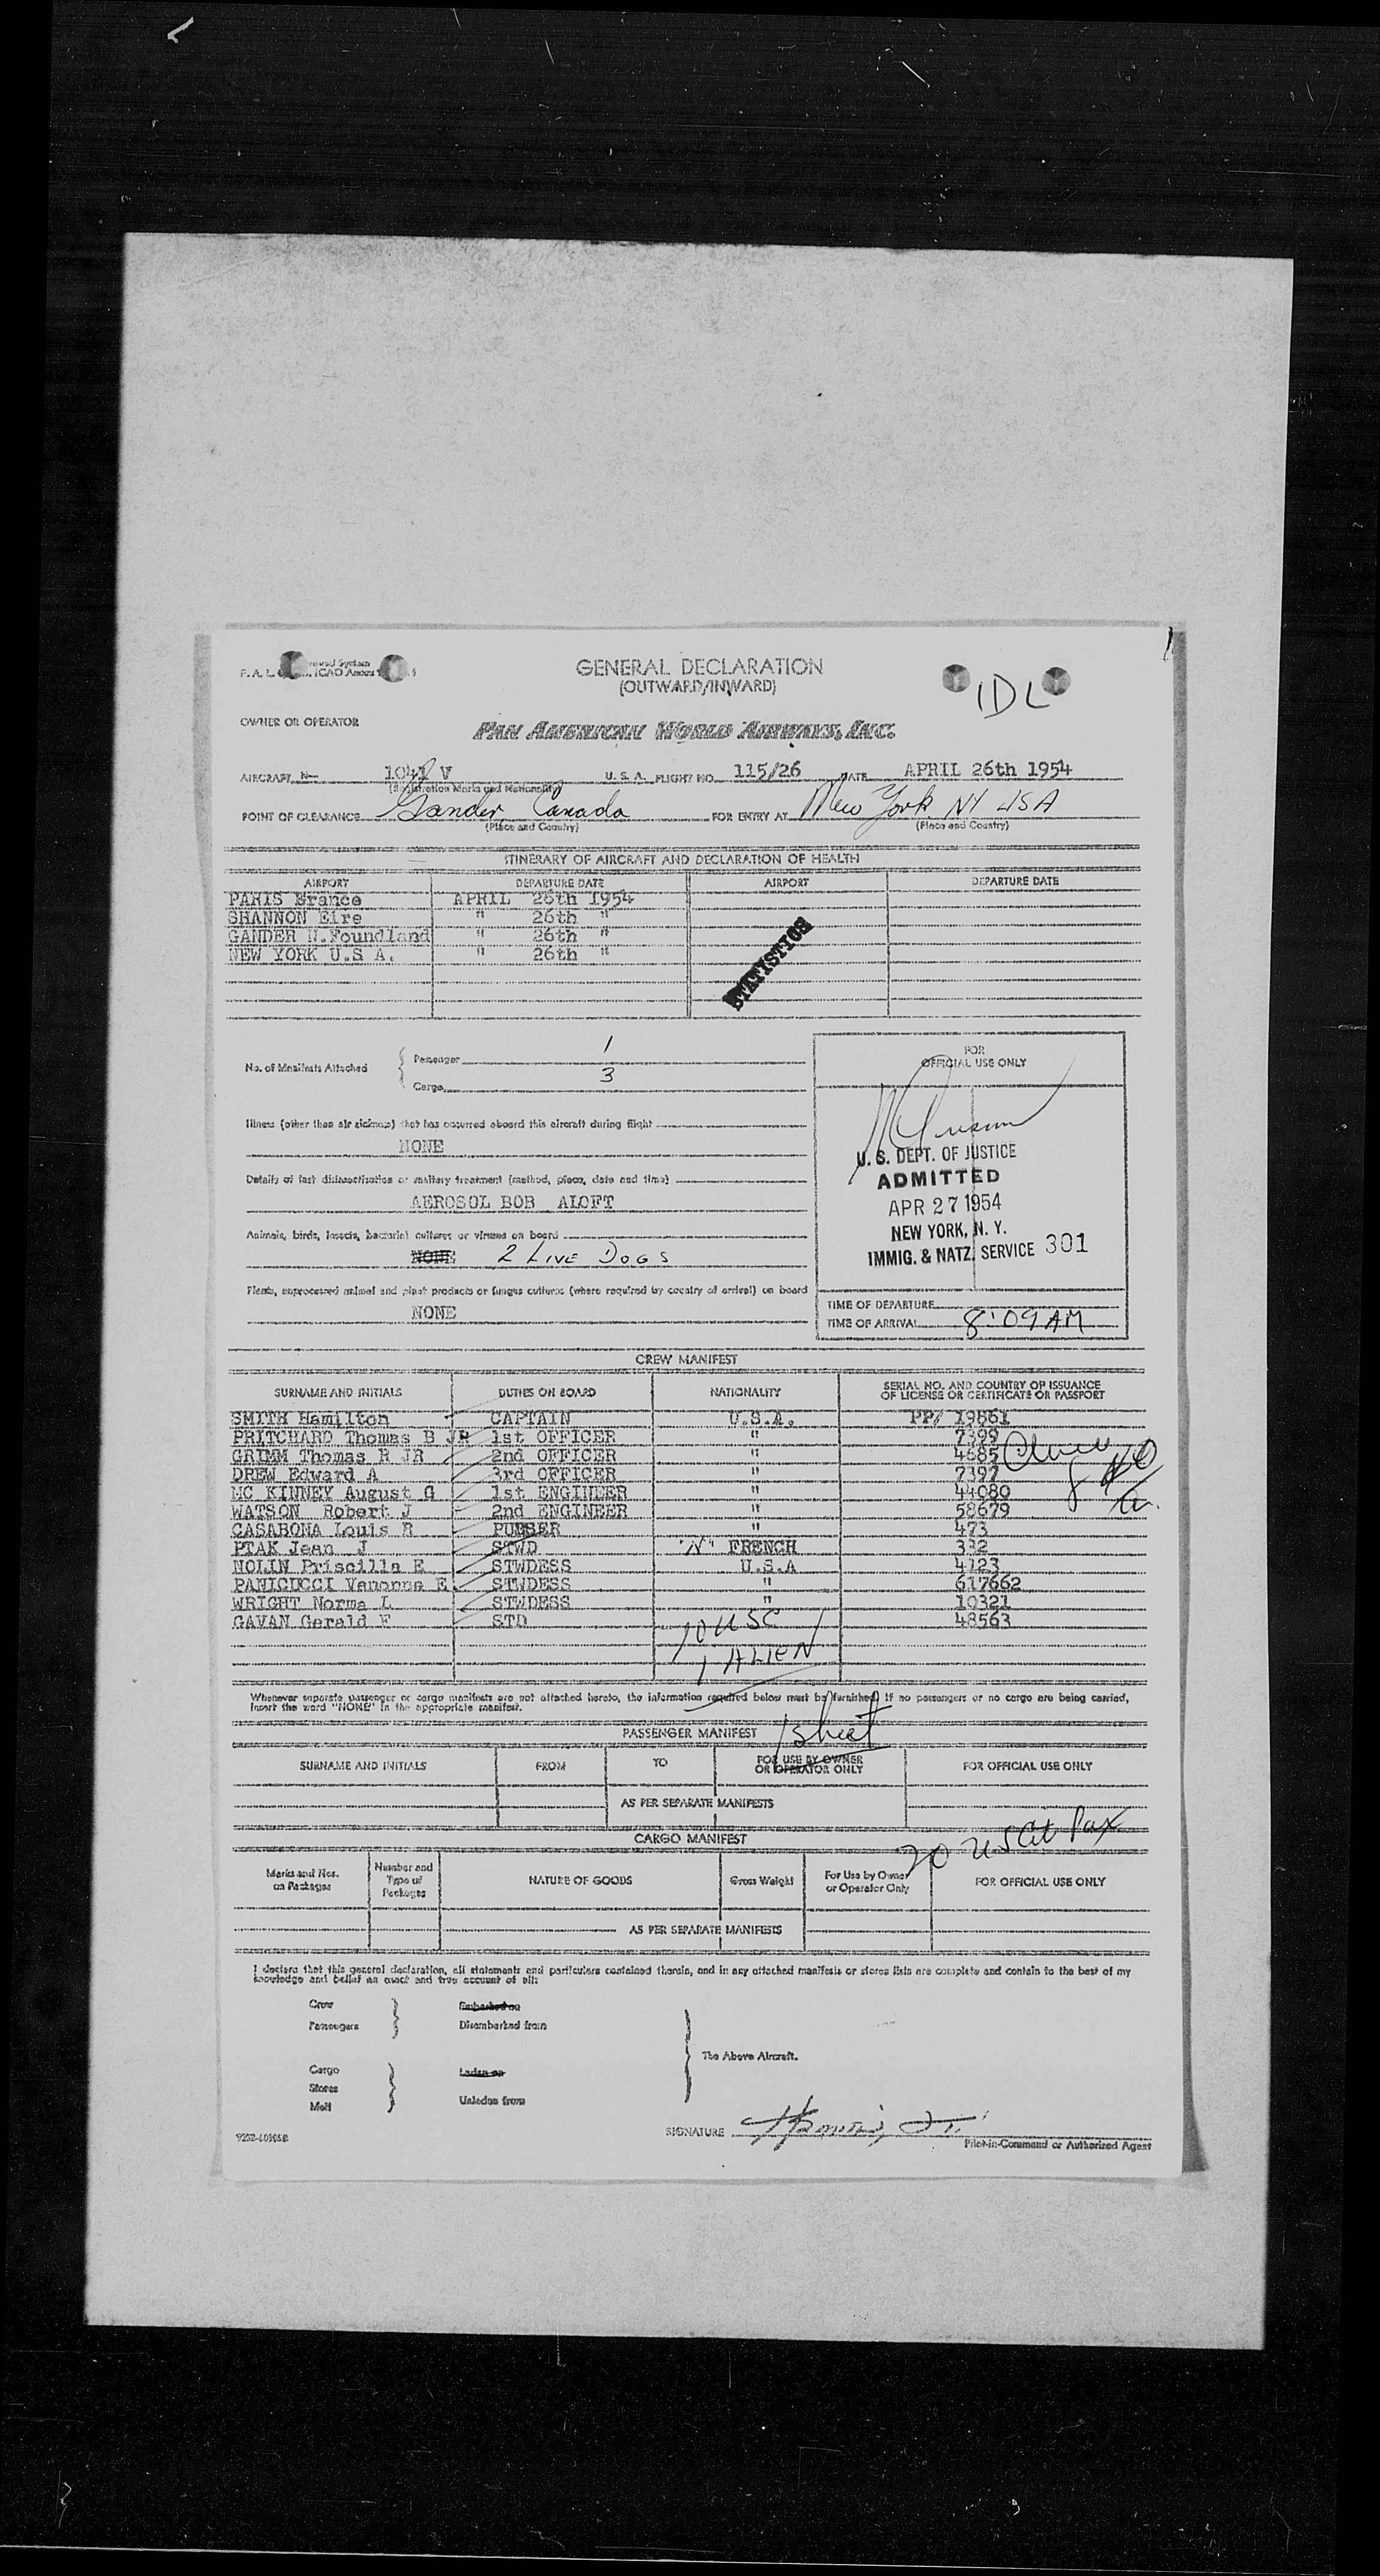 GENERAL DECLARATION
(OUTWARD/INWARD)
IDL
OWNER OR OPERATOR
PAN AMERICAN WORLD AIRWAYS, INC.
AIRCRAFT N— V U. S. A. FLIGHT NO. 115/26 DATE APRIL 26th 1954
(Registration Marks and Nationality)
POINT OF CLEARANCE Gander, Canada FOR ENTRY AT New York NY USA
(Place and Country) (Place and Country)
ITINERARY OF AIRCRAFT AND DECLARATION OF HEALTH
AIRPORT DEPARTURE DATE AIRPORT DEPARTURE DATE
PARIS France APRIL 26th 1954
SHANNON Eire " 26th "
GANDER N.Foundland " 26th "
NEW YORK U.S A. " 26th "
STATISTICS
No. of Manifests Attached { Passenger 1
Cargo 3
FOR
OFFICIAL USE ONLY
Illness (other than air sickness) that has occurred aboard this aircraft during flight
NONE
Details of last disinsectization or sanitary treatment (method, place, date and time)
AEROSOL BOB ALOFT
Animals, birds, insects, bacterial cultures or viruses on board
NONE 2 LIVE DOGS
Plants, unprocessed animal and plant products or fungus cultures (where required by country of arrival) on board
NONE
U. S. DEPT. OF JUSTICE
ADMITTED
APR 27 1954
NEW YORK, N. Y.
IMMIG. & NATZ. SERVICE 301
TIME OF DEPARTURE
TIME OF ARRIVAL 8:09AM
CREW MANIFEST
SURNAME AND INITIALS DUTIES ON BOARD NATIONALITY SERIAL NO. AND COUNTRY OF ISSUANCE
OF LICENSE OR CERTIFICATE OR PASSPORT
SMITH Hamilton CAPTAIN U.S.A. PP/ 19861
PRITCHARD Thomas B JR 1st OFFICER " 7399
GRIMM Thomas R JR 2nd OFFICER " 4685
DREW Edward A 3rd OFFICER " 7397
MC KINNEY August G 1st ENGINEER " 44080
WATSON Robert J 2nd ENGINEER " 58679
CASABONA Louis R PURSER " 473
PTAK Jean J STWD "N" FRENCH 332
NOLIN Priscilla E STWDESS U.S.A 4123
PANICUCCI E STWDESS " 617662
WRIGHT Norma L STWDESS " 10321
GAVAN Gerald F STD 48563
10 USC
1 ALIEN
Whenever separate passenger or cargo manifests are not attached hereto, the information required below must be furnished. If no passengers or no cargo are being carried,
insert the word "NONE" in the appropriate manifest.
PASSENGER MANIFEST 1 sheet
SURNAME AND INITIALS FROM TO FOR USE BY OWNER
OR OPERATOR ONLY FOR OFFICIAL USE ONLY
AS PER SEPARATE MANIFESTS
CARGO MANIFEST
20 US Cit Pax
Marks and Nos.
on Packages Number and
Type of
Packages NATURE OF GOODS Gross Weight For Use by Owner
or Operator Only FOR OFFICIAL USE ONLY
AS PER SEPARATE MANIFESTS
I declare that this general declaration, all statements and particulars contained therein, and in any attached manifests or stores lists are complete and contain to the best of my
knowledge and belief an exact and true account of all:
Crew } Embarked on
Passengers Disembarked from
The Above Aircraft.
Cargo } Laden on
Stores
Mail Unladen from
SIGNATURE
Pilot-in-Command or Authorized Agent